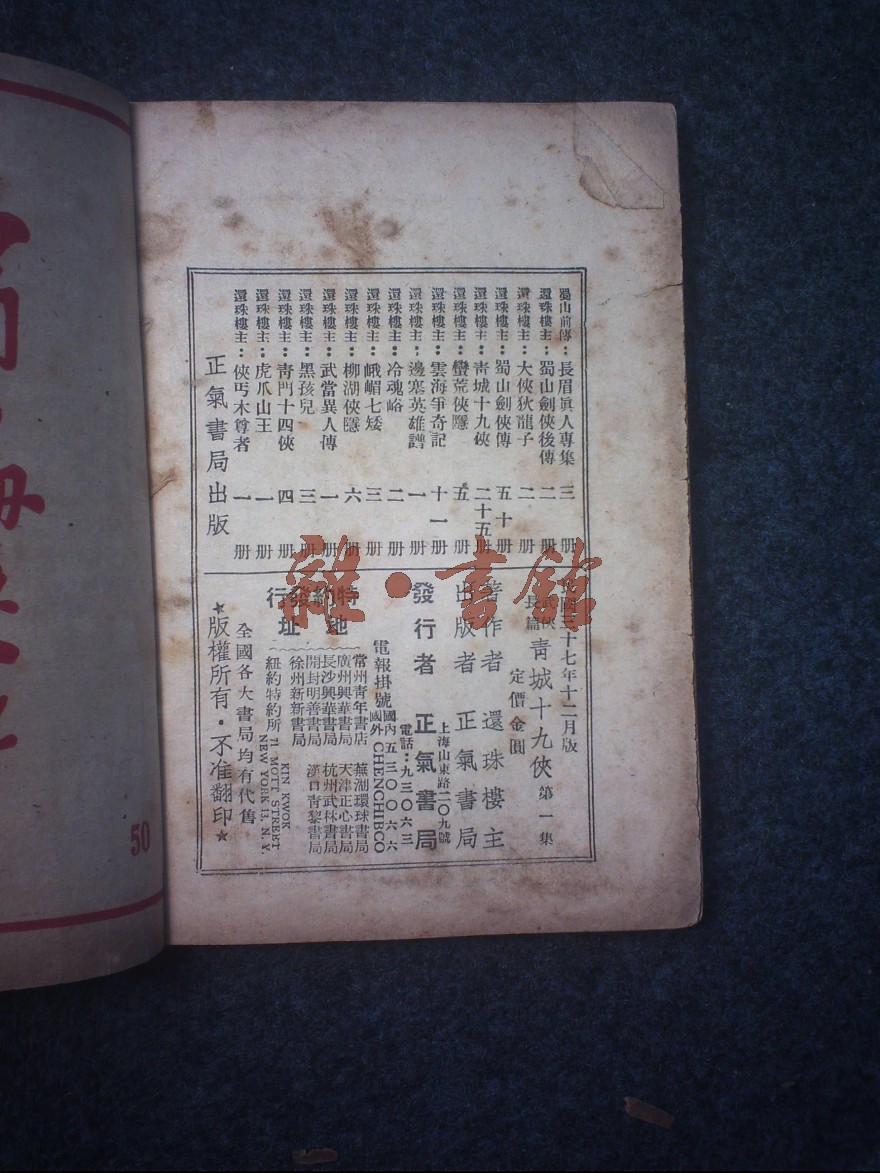 蜀山前傳：長眉眞人專集 三册
還珠樓主：蜀山劍俠後傳 二册
還珠樓主：大俠狄龍子 二册
還珠樓主：蜀山劍俠傳 五十册
還珠樓主：青城十九俠 二十五册
還珠樓主：蠻荒俠隱 五册
還珠樓主：雲海爭奇記 十一册
還珠樓主：邊塞英雄譜 一册
還珠樓主：冷魂峪 二册
還珠樓主：峨嵋七矮 三册
還珠樓主：柳湖俠隱 六册
還珠樓主：武當異人傳 一册
還珠樓主：黑孩兒 三册
還珠樓主：青門十四俠 四册
還珠樓主：虎爪山王 一册
還珠樓主：俠丐木尊者 一册
正氣書局出版
民國三十七年十二月版
武俠長篇 青城十九俠 第一集
定價金圓
著作者 還珠樓主
出版者 正氣書局
發行者 正氣書局
上海山東路二〇九號
電話：九三〇六三
電報掛號 國內 五三〇〇六六
國外 CHENGHIBCO
特約發行地址
常州青年書店 蕪湖環球書局
廣州興華書局 天津正心書局
長沙興華書局 杭州武林書局
開封明善書局 漢口青黎書局
徐州新新書局
紐約特約所
KIN KWOK
71 MOTT STREET
NEW YORK 13, N.Y.
全國各大書局均有代售
★版權所有·不准翻印★
50
雜·書館